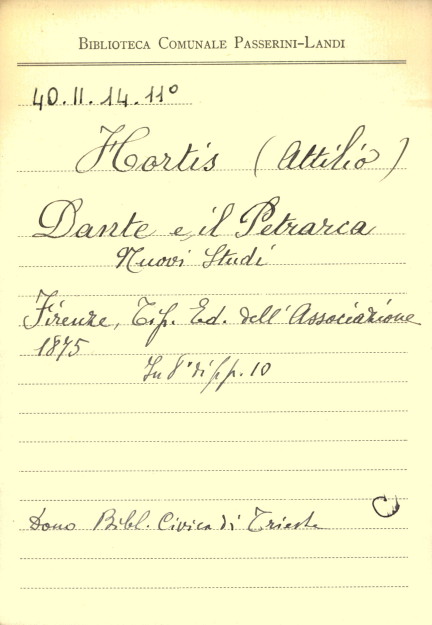 BIBLIOTECA COMUNALE PASSERINI-LANDI
40.II.14.11°
Hortis (Attilio)
Dante e il Petrarca
Nuovi Studi
Firenze, Tip. Ed. dell'Associazione
1875
In 8° di pp. 10
C
Dono Bibl. Civica di Trieste